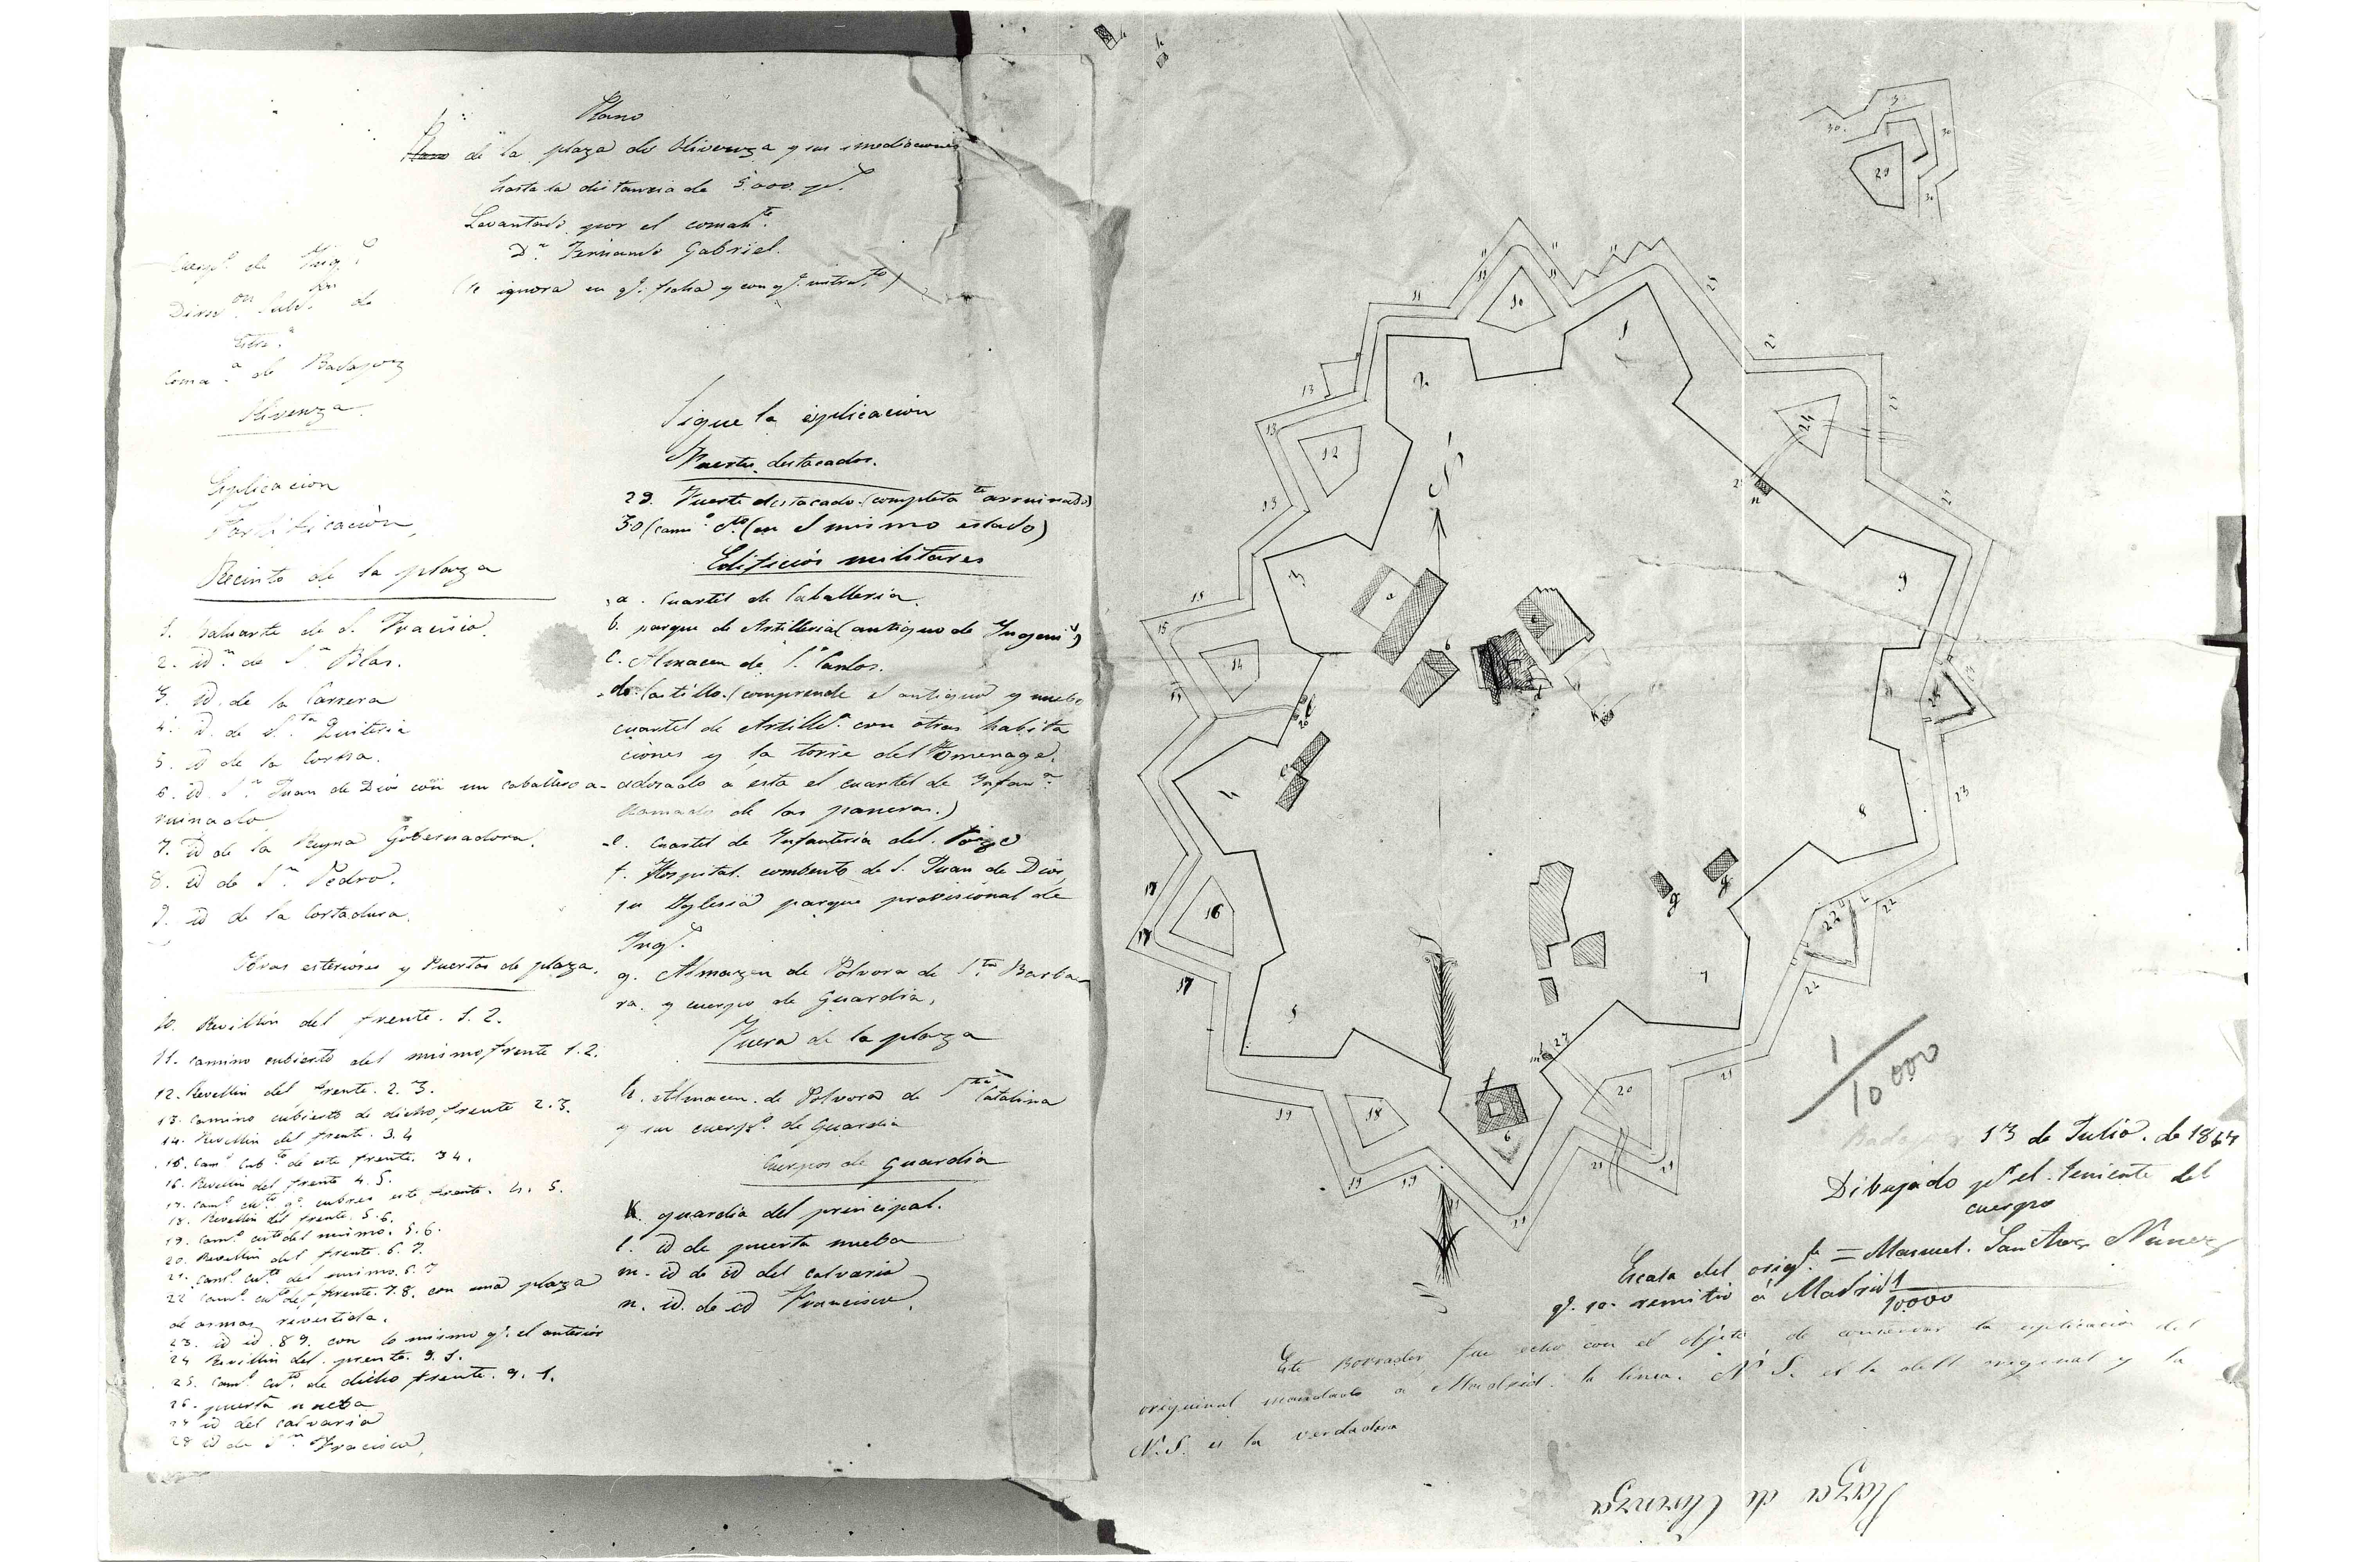 Plano
Plano de la plaza de Olivenza y sus imediaciones
hasta la distancia de 5.000 p.s
Levantado por el comand.te
D.n Fernando Gabriel.
(se ignora en q.e fecha y con q.e
Cuerp.o de Ing.s
Direc.on Sub.on de
Estre.a
Coma.a de Badajoz
Olivenza.
Esplicacion
Fortificación,
Recinto de la plaza
1. Baluarte de S. Fracisco.
2. id.m de S.n Blas.
3. id. de la Carrera
4. id. de S.ta Quiteria
5. id de la Corna.
6. id. S.n Juan de Dios con un caballero a-
ruinado
7. id de la Reyna Gobernadora.
8. id de S.n Pedro.
9. id de la Cortadura.
Obras esteriores y Puertas de plaza.
10. Revellin del frente. 1. 2.
11. camino cubierto del mismo frente 1.2.
12. Revellin del frente. 2. 3.
13. Camino cubierto de dicho frente 2.3.
14. Revellin del frente. 3.4
15. Cam.o Cub.to de este frente. 3 4.
16. Revellin del frente 4. 5.
17. Cam.o cu.to q.e cubre este frente. 4. 5.
18. Revellin del frente. 5. 6.
19. Cam.o cu.to del mismo. 5. 6.
20. Revellin del frente. 6. 7.
21. Cam.o cu.to del mismo. 6. 7
22 Cam.o cu.to del frente. 7. 8. con una plaza
de armas revestida.
23. id id. 8 9. con lo mismo q.e el anterior
24 Revellin del frente. 9. 1.
25. Cam.o cu.to de dicho frente. 9. 1.
26. puerta nueba
27 id del calvario
28 id de S.n Fracisco,
Sigue la esplicacion
Fuertes destacados.
29. Fuerte destacado (completa.te arruinado)
30 (cam.o c.to (en el mismo estado)
Edificios militares
a. Cuartel de Caballeria.
b. parque de Artilleria (antiguo de Ingeni.s)
c. Almacen de S.n Carlos.
d. Castillo. (comprende el antiguo y nuebo
cuartel de Artill.a con otras habita
ciones y la torre del Homenage.
adosado a esta el cuartel de Infan.a
llamado de las paneras.)
e. Cuartel de Infanteria del Pozo
f. Hospital. combento de S. Juan de Dios,
su Yglesia parque provisional de
Ing.s
g. Almazen de Polvora de S.ta Barba-
ra. y cuerpo de Guardia.
Fuera de la plaza
h. Almacen. de Polvora de S.ta Catalina
y su cuerp.o de Guardia
Cuerpos de guardia
k. guardia del principal.
l. id de puerta nueba
m. id de id del calvario
n. id. de id Francisco.
1
10000
13 de Julio. de 1867
Dibujado p.r el. teniente del
cuerpo
Manuel. Sanchez Nunez
Escala del orig.l =
q.e se. remitio á Madrid 1
10000
Este Borrador fue echo con el objeto de conservar la esplicacion del
originial mandado a Madrid: la linea. N' S'. es la dell original y la
N.S. es la verdadera
Plaza de Olivenza